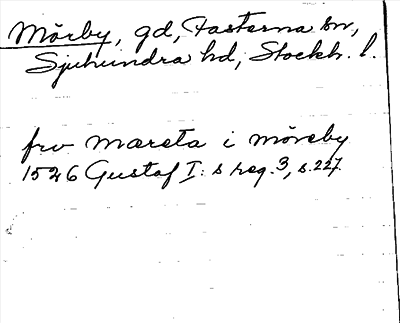 Mörby, gd, Fasterna sn,
Sjuhundra hd, Stockh. l.
fru Mareta i Möreby
1526 Gustaf I: s reg. 3, s. 227.